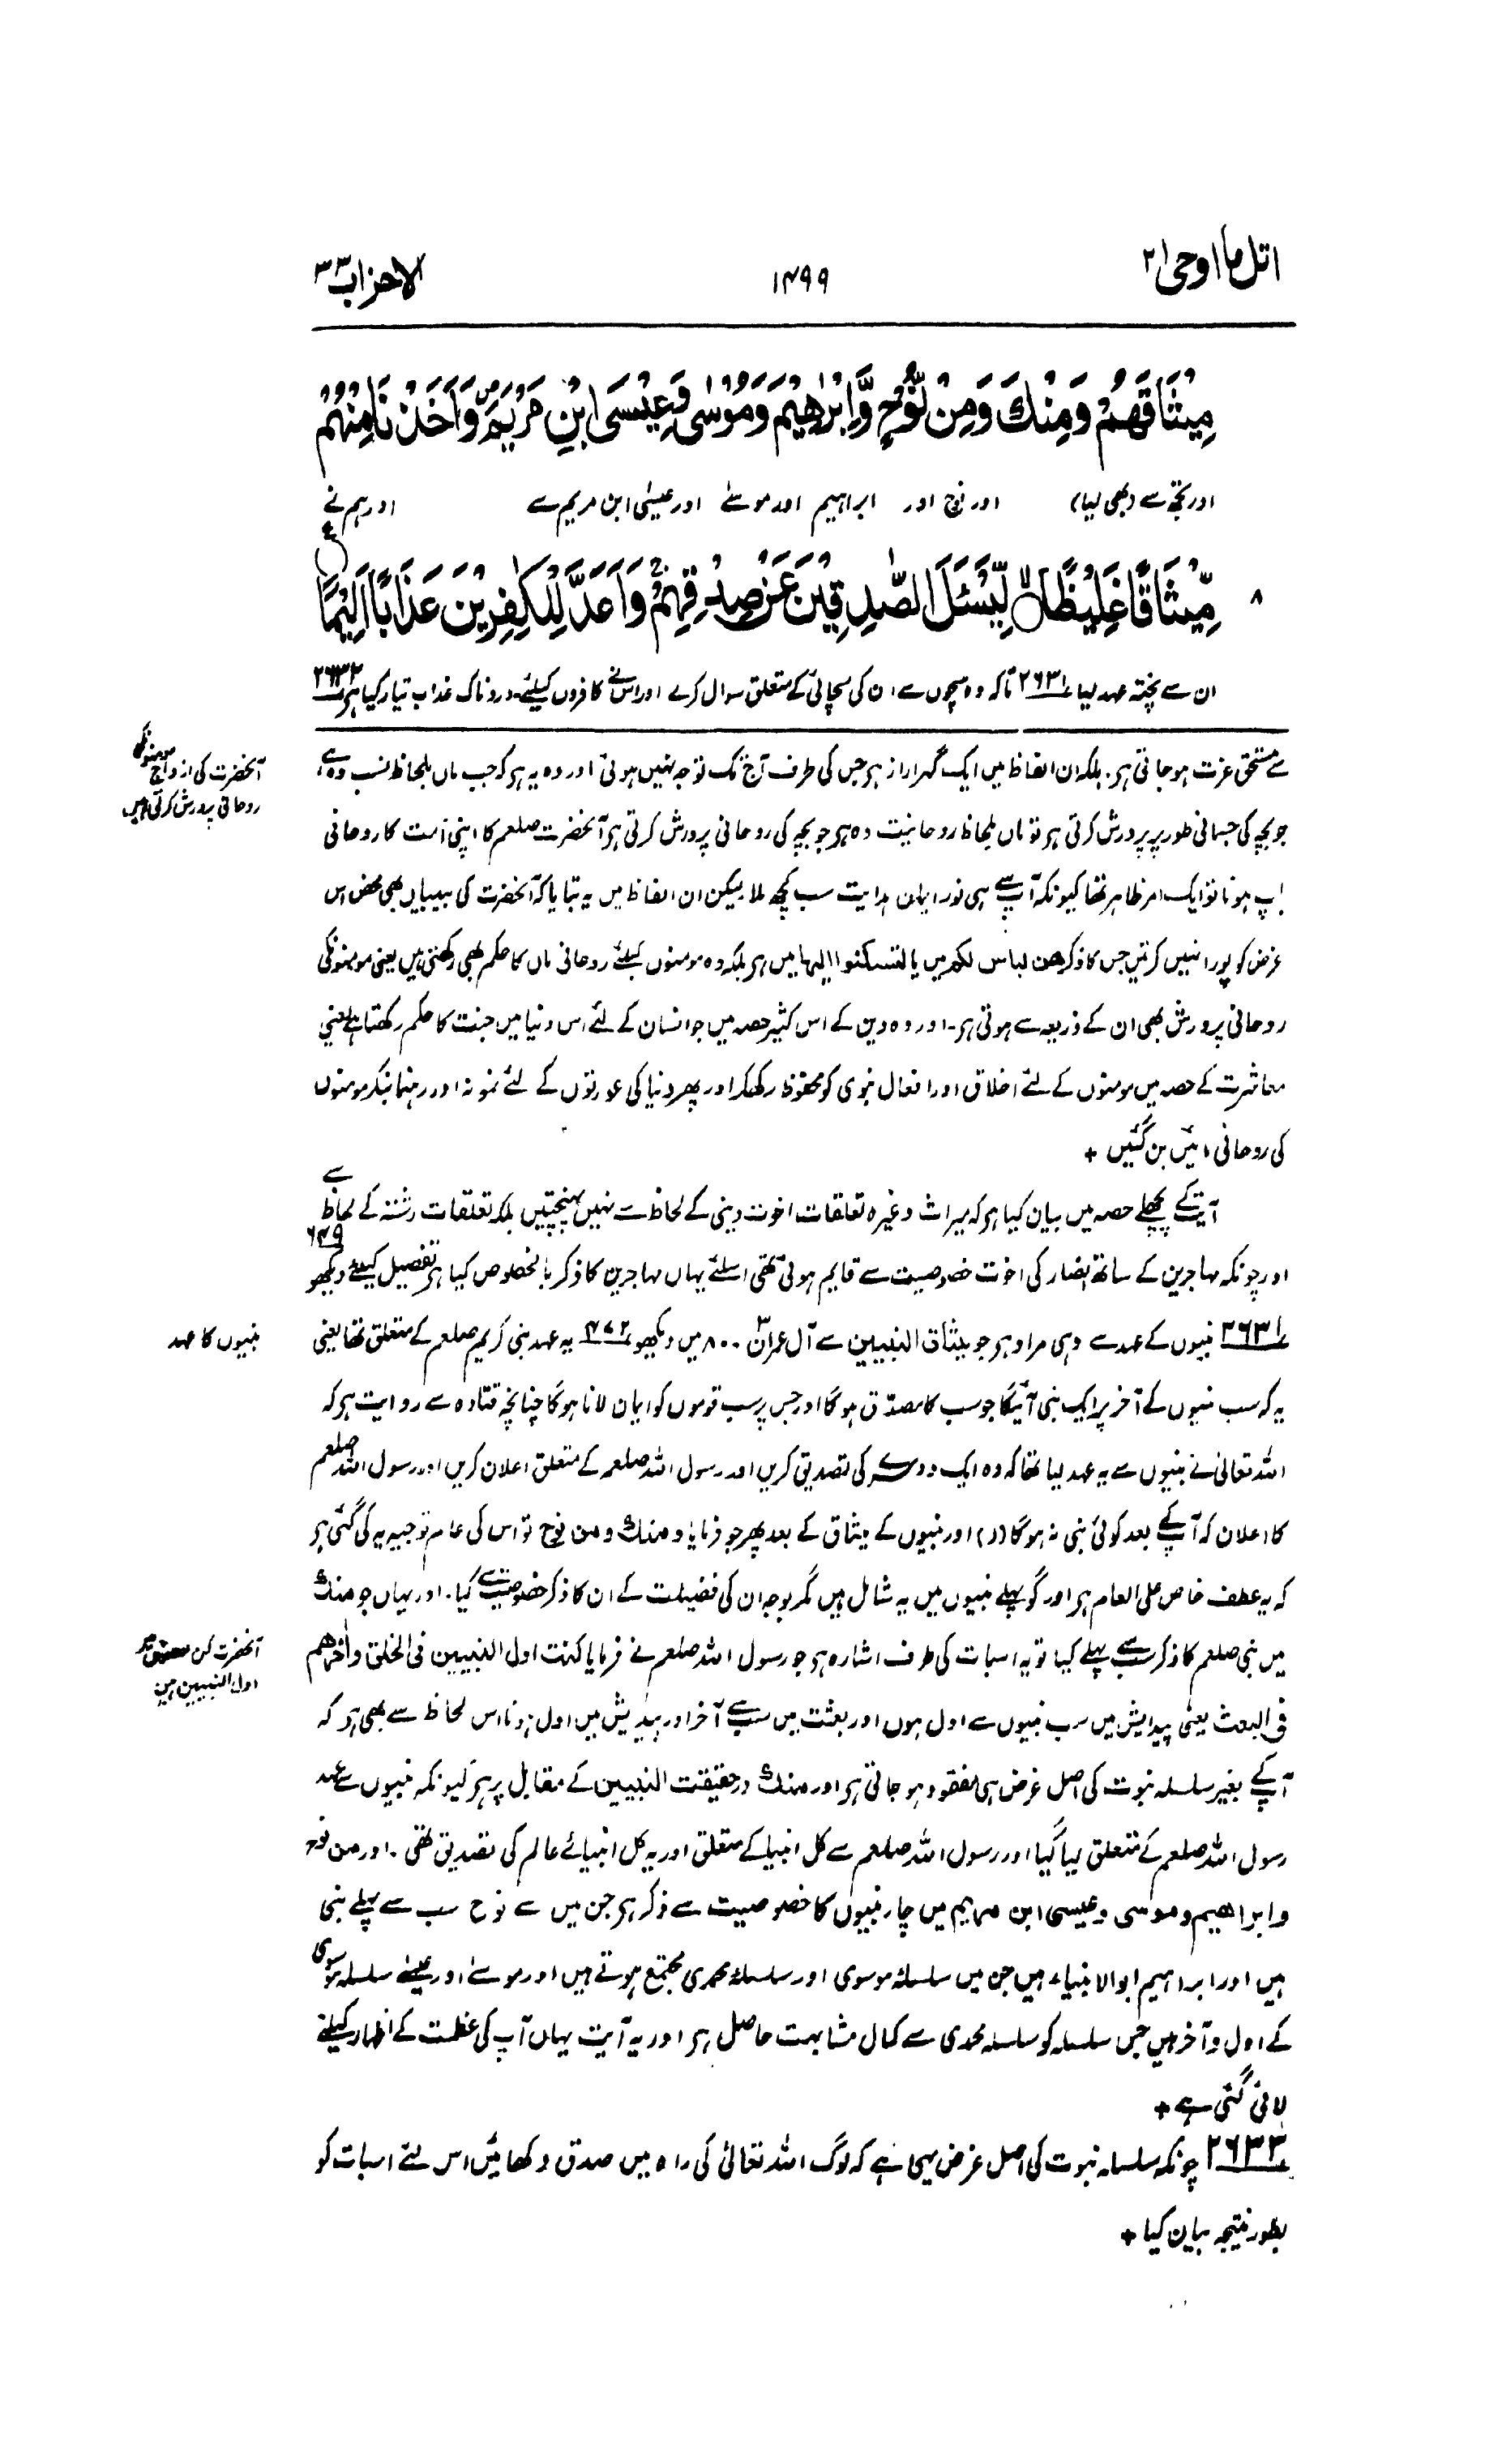 اتل ما اوحی ۲۱
۱۴۹۹
الاحزاب ۳۳
مِيْثَاقَهُمْ وَمِنْكَ وَمِنْ نُّوْحٍ وَّاِبْرٰهِيْمَ وَمُوْسٰى وَعِيْسَى ابْنِ مَرْيَمَ ۪ وَاَخَذْنَا مِنْهُمْ
اور تجھ سے (بھی لیا) اور نوح اور ابراہیم اور موسےٰ اور عیسٰی ابن مریم سے اور ہم نے
۸ مِّيْثَاقًا غَلِيْظًا ۙ لِّيَسْـَٔلَ الصّٰدِقِيْنَ عَنْ صِدْقِهِمْ ۚ وَاَعَدَّ لِلْكٰفِرِيْنَ عَذَابًا اَلِيْمًا
ع
ان سے پختہ عہد لیا ۲۶۳۱ تاکہ وہ سچوں سے ان کی سچائی کے متعلق سوال کرے اور اس نے کافروں کیلئے دردناک عذاب تیار کیا ہر ۲۶۳۲
سے مستحق عزت ہو جاتی ہر۔ بلکہ ان الفاظ میں ایک گہرا راز ہر جس کی طرف آج تک توجہ نہیں ہوئی اور وہ یہ ہر کہ جب ماں بلحاظ نسب وہ ہے،
آنحضرت کی ازواج مومنونکی
روحانی پرورش کرتی ہیں
جو بچہ کی جسمانی طور پر پرورش کرتی ہر تو ماں بلحاظ روحانیت وہ ہر جو بچہ کی روحانی پرورش کرتی ہر آنحضرت صلعم کا اپنی امت کا روحانی
باپ ہونا تو ایک امر ظاہر تھا کیونکہ آپ سے ہی نور ایمان ہدایت سب کچھ ملا لیکن ان الفاظ میں یہ بتایا کہ آنحضرت کی بیبیاں بھی محض اس
غرض کو پورا نہیں کرتیں جس کا ذکر ھن لباس لکم میں یا لتسکنوا الیہا میں ہر بلکہ وہ مومنوں کیلئے روحانی ماں کا حکم بھی رکھتی ہیں یعنی مومنونکی
روحانی پرورش بھی ان کے ذریعہ سے ہوتی ہر۔ اور وہ دین کے اس کثیر حصہ میں جو انسان کے لئے اس دنیا میں جنت کا حکم رکھتا ہے یعنی
معاشرت کے حصہ میں مومنوں کے لئے اخلاق اور افعال نبوی کو محفوظ رکھکر اور پھر دنیا کی عورتوں کے لئے نمونہ اور رہنما بنکر مومنوں
کی روحانی مائیں بن گئیں +
آیت کے پچھلے حصہ میں بیان کیا ہر کہ میراث وغیرہ تعلقات اخوت دینی کے لحاظ سے نہیں پہنچتیں بلکہ تعلقات رشتہ کے لحاظ سے
اور چونکہ مہاجرین کے ساتھ انصار کی اخوت خصوصیت سے قایم ہوئی تھی اسلئے یہاں مہاجرین کا ذکر بالخصوص کیا ہر تفصیل کیلئے دیکھو ۶۴۹
۲۶۳۱ نبیوں کے عہد سے وہی مراد ہر جو میثاق النبیین سے آل عمران ۳ ۔ ۸۰ میں دیکھو ۴۷۲ یہ عہد نبی کریم صلعم کے متعلق تھا یعنی
نبیوں کا عہد
یہ کہ سب نبیوں کے آخر پر ایک نبی آئیگا جو سب کا مصدّق ہوگا اور جس پر سب قوموں کو ایمان لانا ہوگا چنانچہ قتادہ سے روایت ہر کہ
اللہ تعالیٰ نے نبیوں سے یہ عہد لیا تھا کہ وہ ایک دوسرے کی تصدیق کریں اور رسول اللہ صلعم کے متعلق اعلان کریں اور رسول اللہ صلعم
کا اعلان کہ آپ کے بعد کوئی نبی نہ ہوگا (ر) اور نبیوں کے میثاق کے بعد پھر جو فرمایا و منک و من نوح تو اس کی عام توجیہ یہ کی گئی ہر
کہ یہ عطف خاص علی العام ہر اور گو پہلے نبیوں میں یہ شامل ہیں مگر بوجہ ان کی فضیلت کے ان کا ذکر خصوصیت سے کیا۔ اور یہاں جو منک
میں نبی صلعم کا ذکر سب سے پہلے کیا تو یہ اسبات کی طرف اشارہ ہر جو رسول اللہ صلعم نے فرمایا کنت اول النبیین فی الخلق واٰخرھم
آنحضرت کن
اول النبیین ہیں
فی البعث یعنی پیدایش میں سب نبیوں سے اول ہوں اور بعثت میں سب سے آخر اور پیدایش میں اول ہونا اس لحاظ سے بھی ہر کہ
آپ کے بغیر سلسلہ نبوت کی اصل غرض ہی مفقود ہو جاتی ہر اور منک درحقیقت النبیین کے مقابل پر ہر کیونکہ نبیوں سے عہد
رسول اللہ صلعم کے متعلق لیا گیا اور رسول اللہ صلعم سے کل انبیا کے متعلق اور یہ کل انبیائے عالم کی تصدیق تھی۔ اور من نوح
و ابراھیم و موسی و عیسی ابن مریم میں چار نبیوں کا خصوصیت سے ذکر ہر جن میں سے نوح سب سے پہلے نبی
ہیں اور ابراہیم ابوالانبیاء ہیں جن میں سلسلۂ موسوی اور سلسلۂ محمدی مجتمع ہوتے ہیں اور موسےٰ اور عیسےٰ سلسلہ موسوی
کے اول و آخر ہیں جس سلسلہ کو سلسلہ محمدی سے کمال مشابہت حاصل ہر اور یہ آیت یہاں آپ کی عظمت کے اظہار کیلئے
لائی گئی ہے +
۲۶۳۳ چونکہ سلسلہ نبوت کی اصل غرض یہی ہے کہ لوگ اللہ تعالیٰ کی راہ میں صدق دکھائیں اس لئے اسبات کو
بطور نتیجہ بیان کیا +